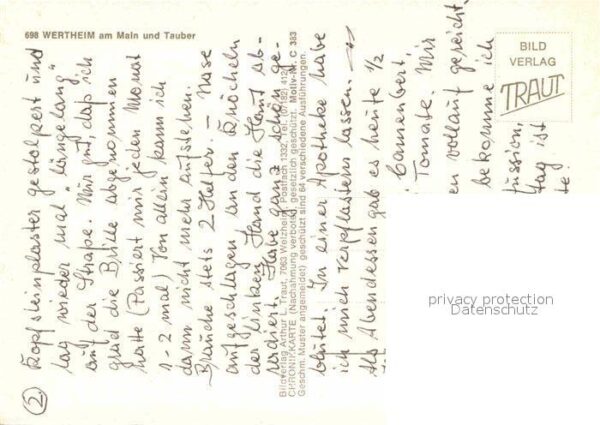 698 WERTHEIM am Main und Tauber
BILD
VERLAG
TRAUT
②
Kopfsteinplaster gestolpert und
lag wieder mal "längelang"
auf der Straße. Nur gut, daß ich
grad die Brille abgenommen
hatte (Passiert mir jeden Monat
1-2 mal) Von allein kann ich
dann nicht mehr aufstehen.
Brauche stets 2 Helfer. – Nase
aufgeschlagen an den Knöcheln
der linken Hand die Haut ab-
Habe ganz schön ge-
blutet. In einer Apotheke habe
ich mich verpflastern lassen. –
Als Abendessen gab es heute 1/2
Camenbert
Tomate. Mir
en vollauf gereicht.
bekomme ich
tussion,
tag ist
te!
Bildverlag Arthur F. Traut, 7063 Welzheim, Postfach 1332, Tel. (07182) 412
CHRONIKKARTE (Nachahmung verboten), gesetzlich geschützt. Motiv-Nr. C 383
Geschm. Muster angemeldet) geschützt sind 64 verschiedene Ausführungen.
privacy protection
Datenschutz